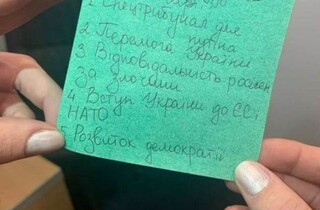 1 Спецтрибунал для
путіна
2 Перемога України
3 Відповідальність росіян
за злочини
4 Вступ України до ЄС і
НАТО
5 Розвиток демократії